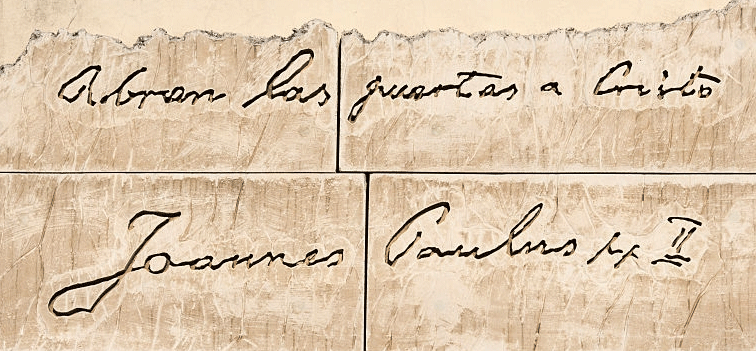 Abran las puertas a Cristo
Joannes Paulus pp II